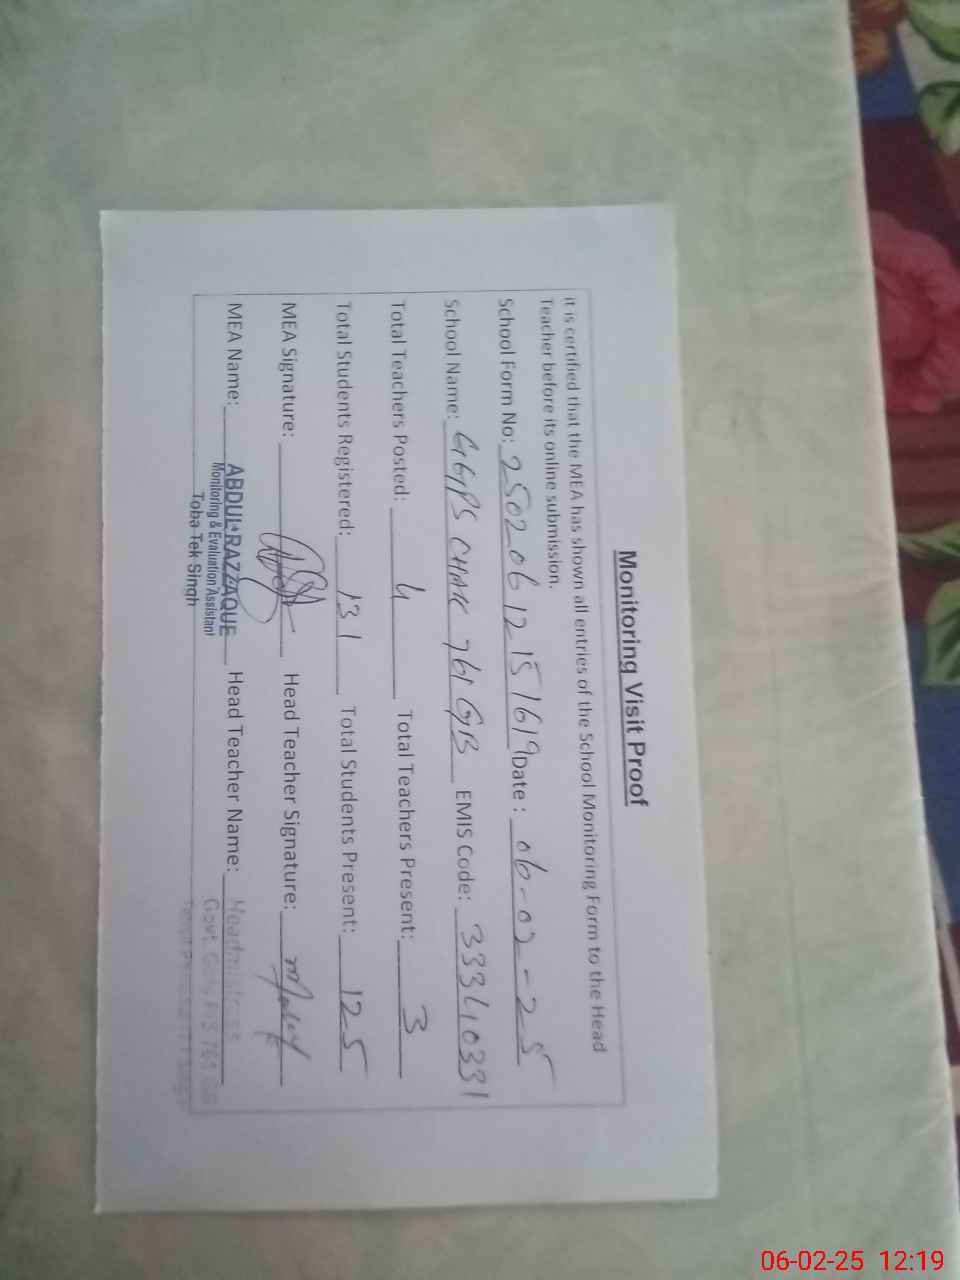 Monitoring Visit Proof
It is certified that the MEA has shown all entries of the School Monitoring Form to the Head
Teacher before its online submission.
School Form No: 25020612151619 Date : 06-02-25
School Name: GGPS CHAK 761 GB EMIS Code: 33340331
Total Teachers Posted: 4 Total Teachers Present: 3
Total Students Registered: 131 Total Students Present: 125
MEA Signature: Head Teacher Signature:
MEA Name: ABDUL RAZZAQUE Head Teacher Name: Headmistress
Monitoring & Evaluation Assistant Govt. 761 GB
Toba Tek Singh
06-02-25 12:19